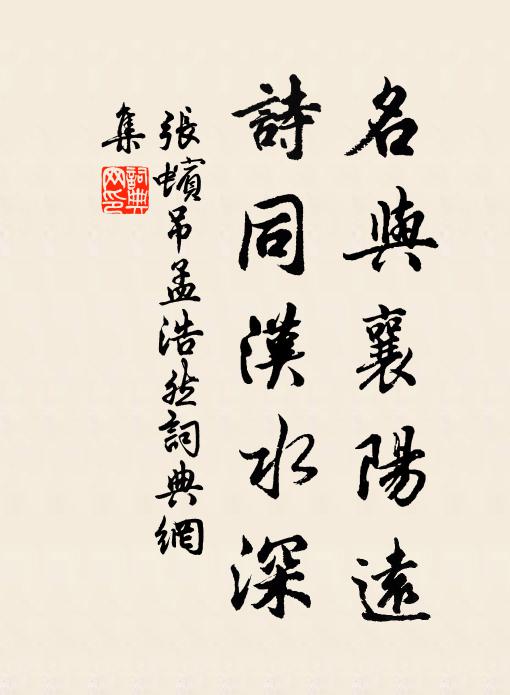 名與襄陽遠
詩同漢水深
張蠙吊孟浩然詞典網
集
詞典
网印